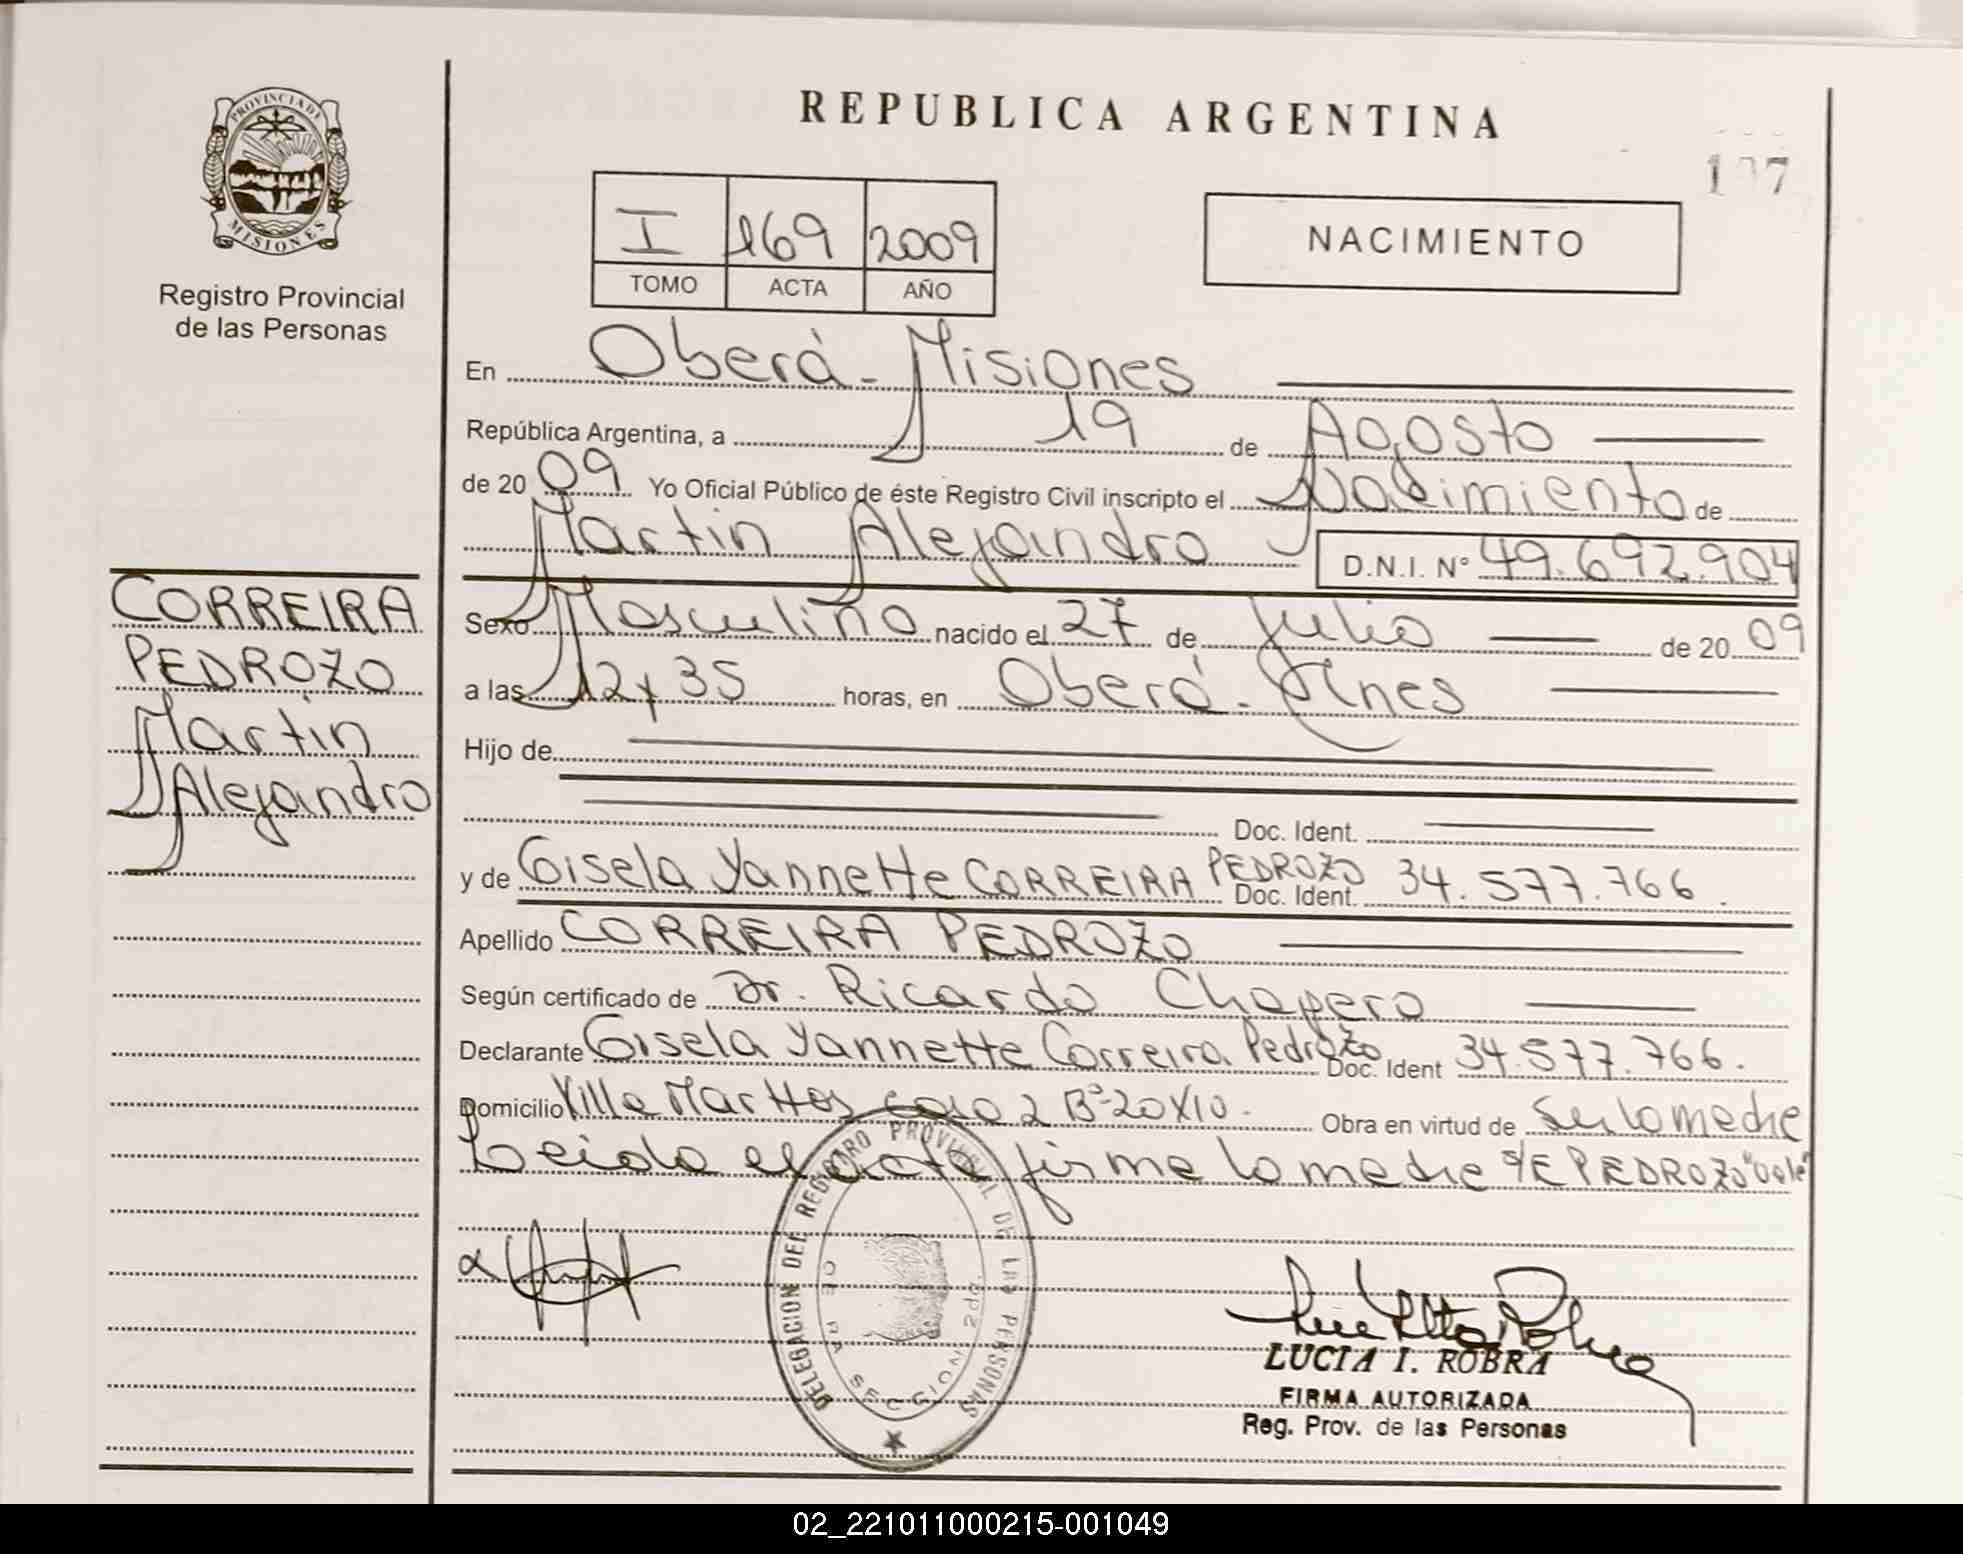 PROVINCIA DE
MISIONES
Registro Provincial
de las Personas
CORREIRA
PEDROZO
Martin
Alejandro
REPUBLICA ARGENTINA
I 169 2009
TOMO ACTA AÑO
NACIMIENTO
En Oberá - Misiones
República Argentina, a 19 de Agosto
de 2009 Yo Oficial Público de éste Registro Civil inscripto el Nacimiento de
Martin Alejandro D.N.I. Nº 49.692.904
Sexo Masculino nacido el 27 de Julio de 2009
a las 12y 35 horas, en Oberá - Mnes
Hijo de
Doc. Ident.
y de Gisela Yannette CORREIRA PEDROZO Doc. Ident. 34.577.766.
Apellido CORREIRA PEDROZO
Según certificado de Dr. Ricardo Chapero
Declarante Gisela Yannette Correira Pedrozo Doc. Ident 34.577.766.
Domicilio Villa Marttos casa 2 Bº-20X10. Obra en virtud de Ser la madre
Leida el acta firma la madre S/E PEDROZO "Vale"
DELEGACION DEL REGISTRO PROVINCIAL DE LAS PERSONAS
OBERA SECCION 2da.
LUCIA I. ROBRA
FIRMA AUTORIZADA
Reg. Prov. de las Personas
02_221011000215-001049